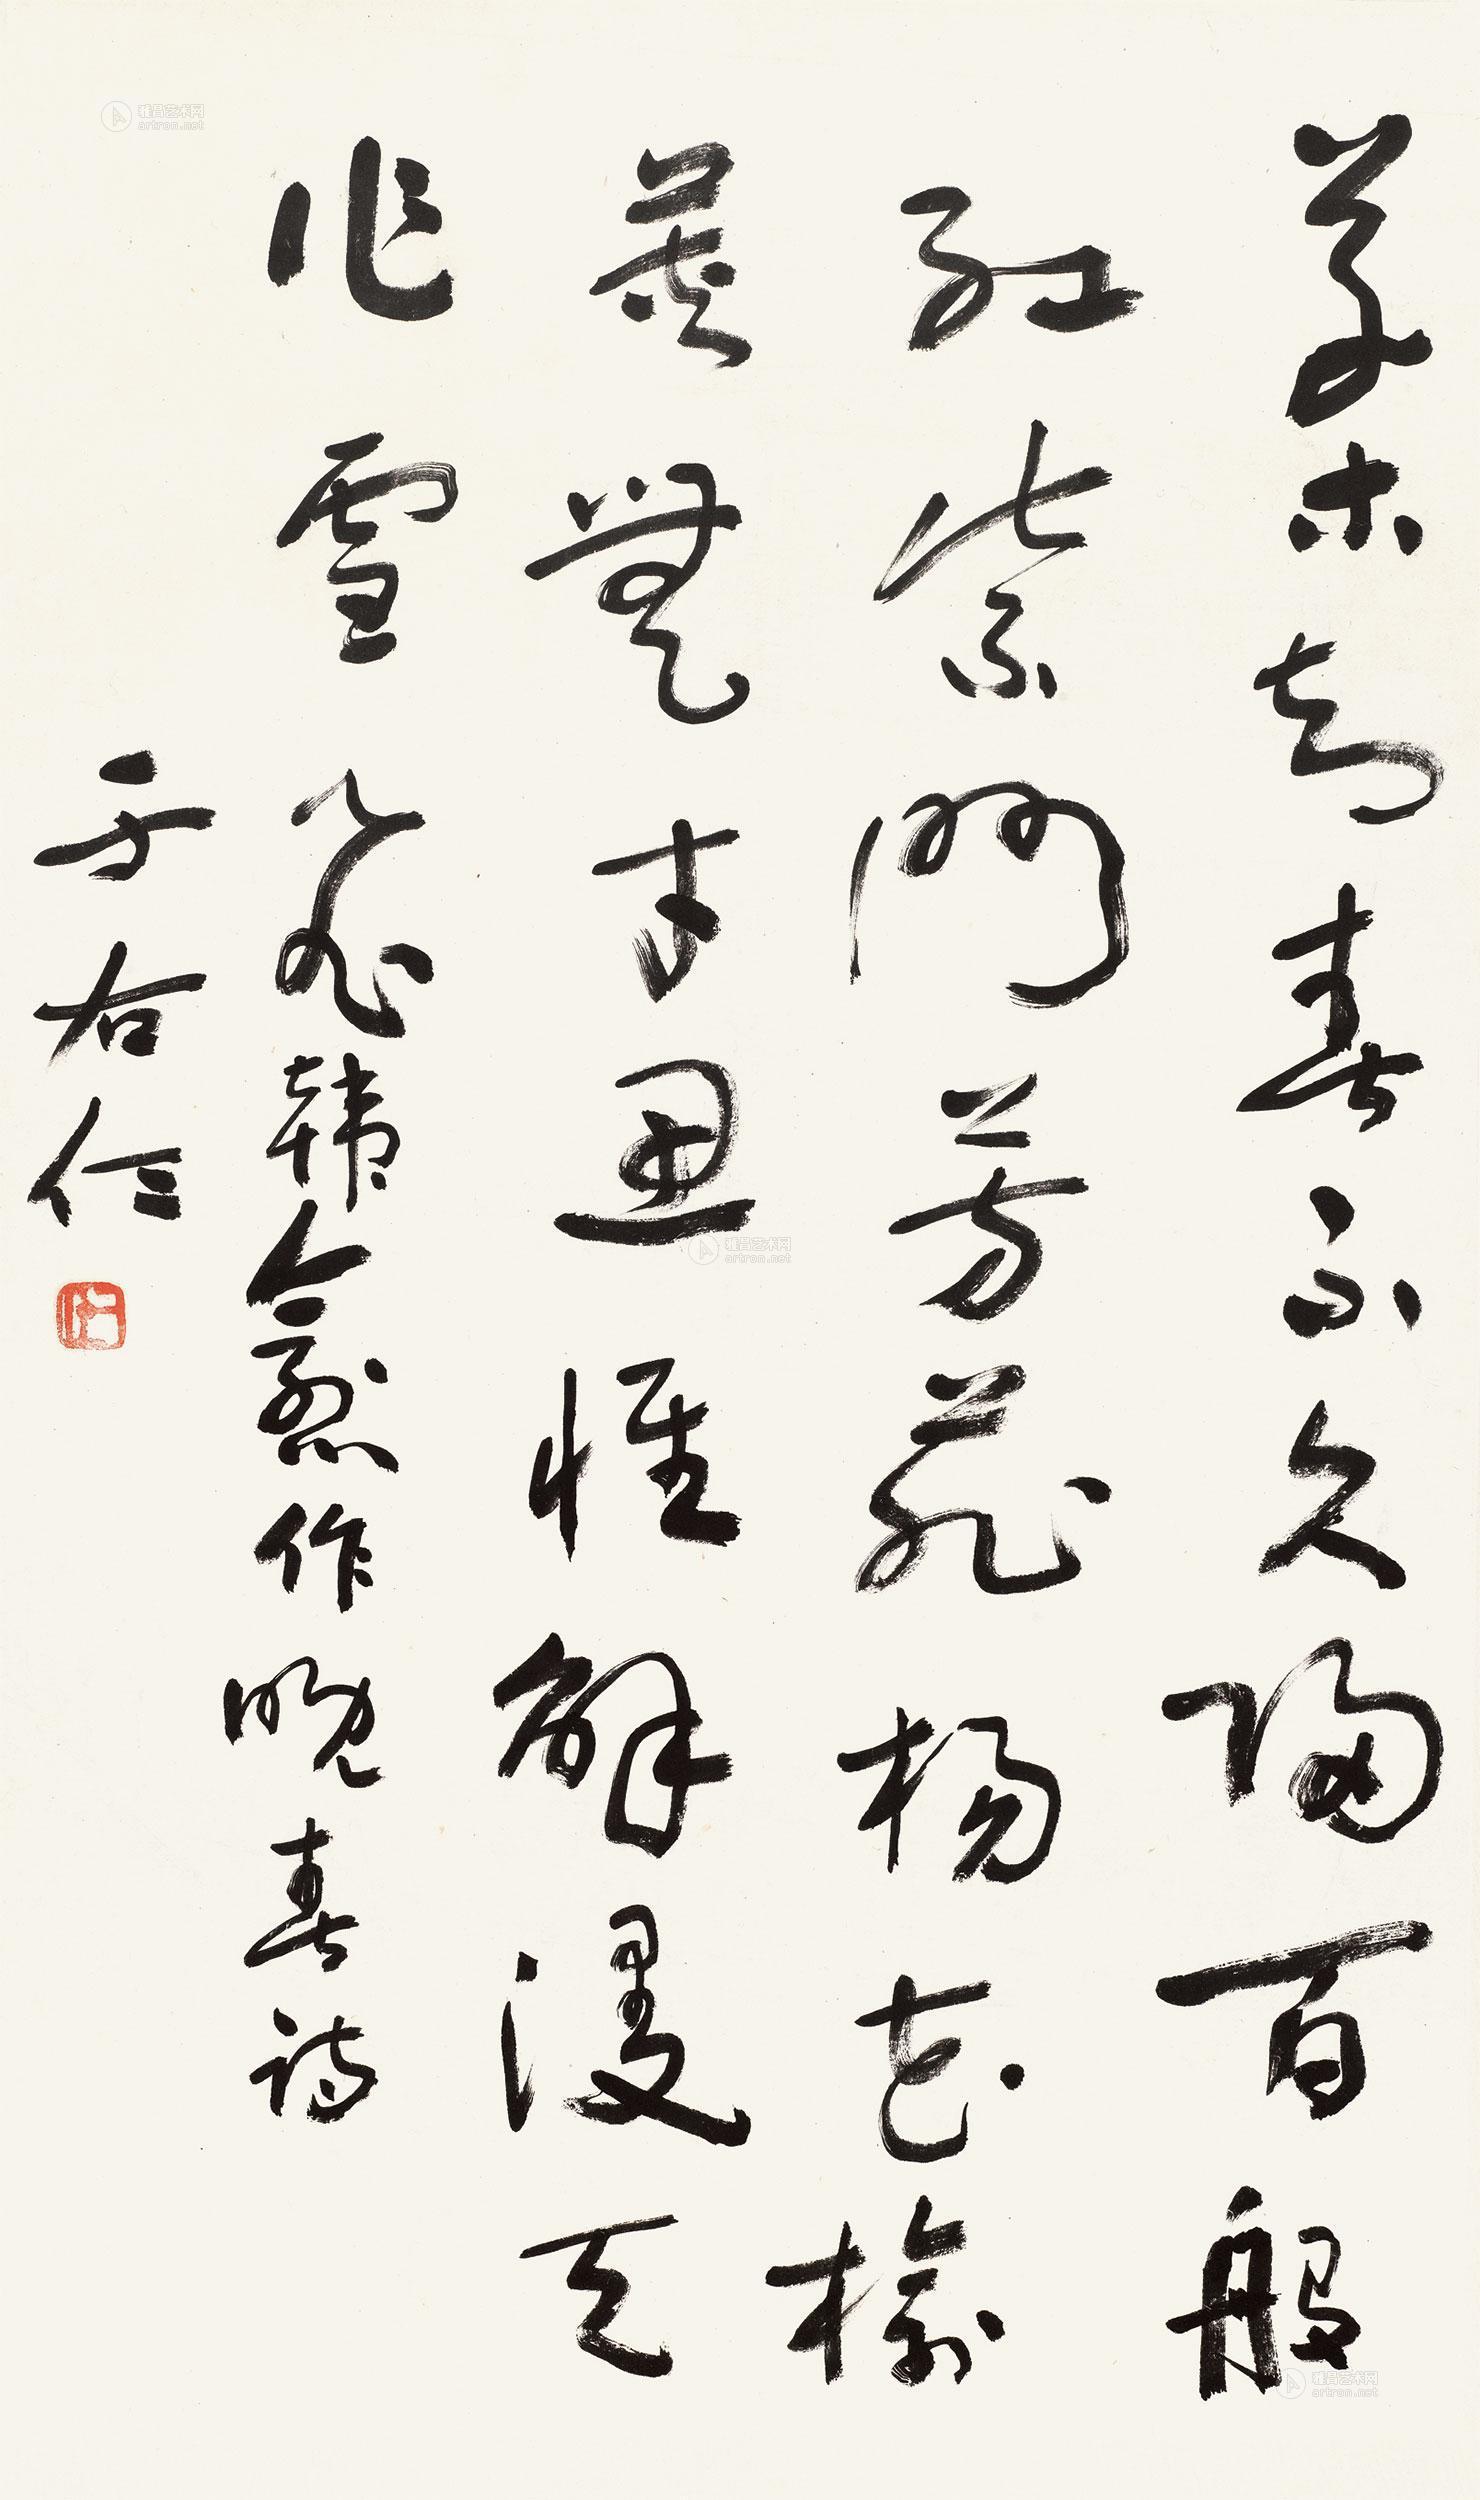 草木知春不久歸百般
紅紫鬥芳菲楊花榆
莢無才思惟解漫天
作雪飛 韓愈作晚春詩
于右任
雅昌艺术网
artron.net
雅昌艺术网
artron.net
雅昌艺术网
artron.net